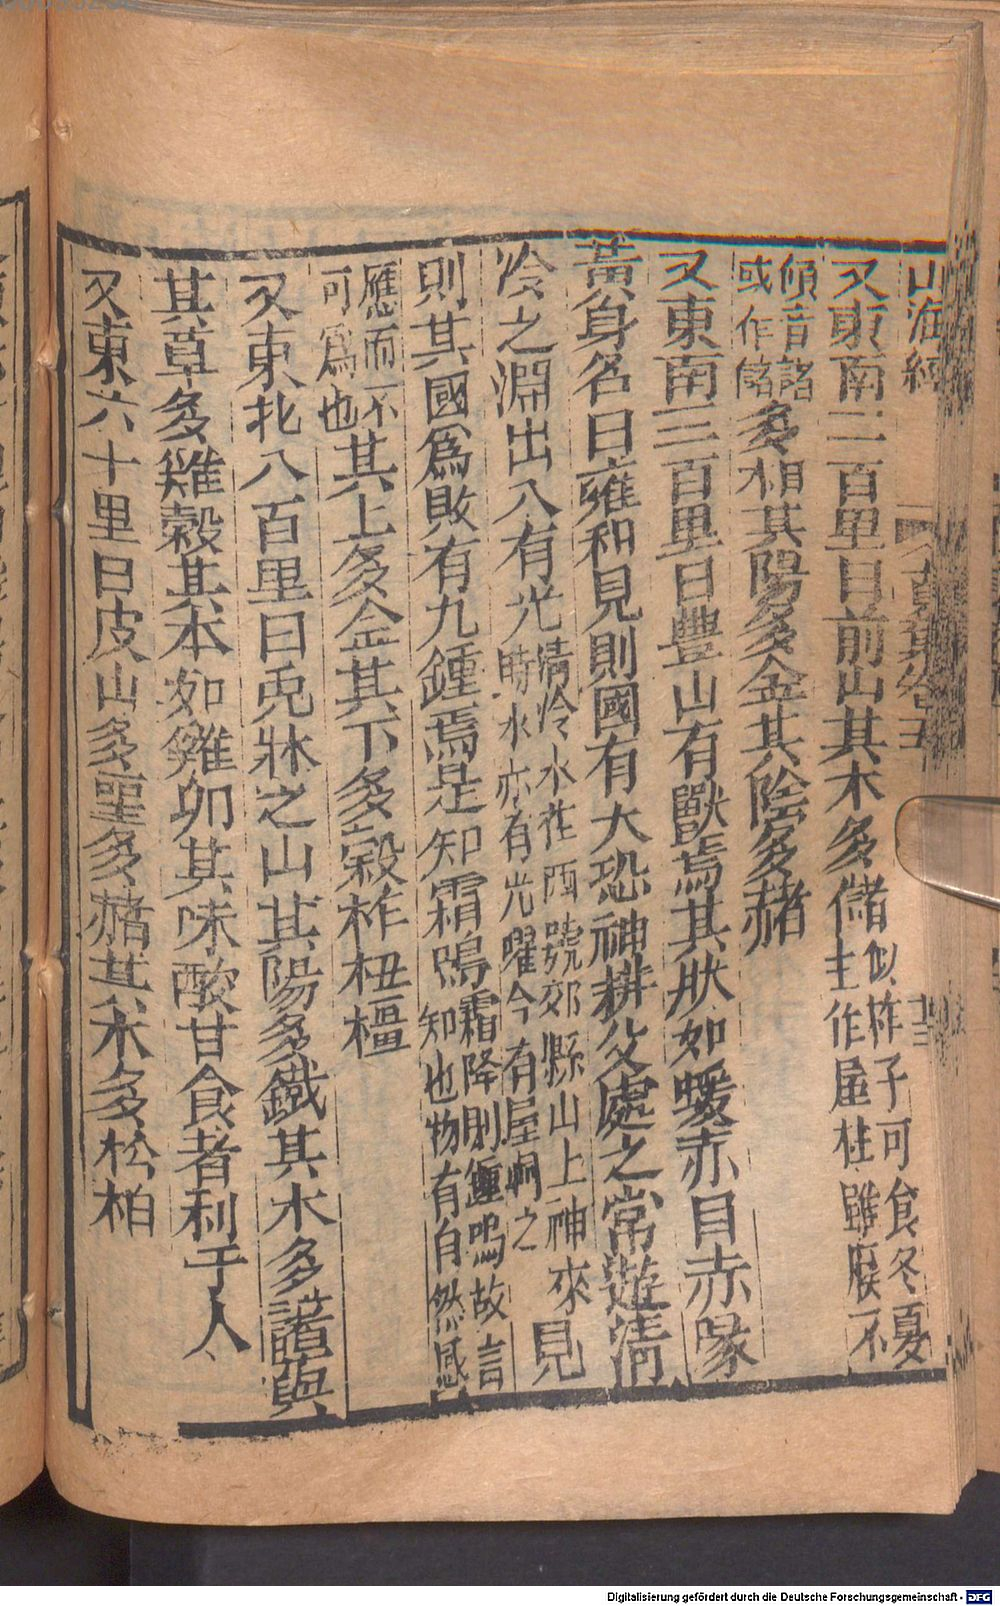 山海經 卷五
又東南二百里曰前山其木多儲似柞子可食冬夏生作屋柱難腐不
傾音諸或作儲多栢其陽多金其陰多赭
又東南三百里曰豐山有獸焉其狀如蝯赤目赤喙
黃身名曰雍和見則國有大恐神耕父處之常遊清
冷之淵出入有光清泠水在西號郊縣山上神來時水亦有光曜今有屋祠之見
則其國爲敗有九鍾焉是知霜鳴霜降則鍾鳴故言知也物有自然感
應而不可爲也其上多金其下多穀柞杻橿
又東北八百里曰兎牀之山其陽多鐵其木多藷藇
其草多雞穀其本如雞卵其味酸甘食者利于人
又東六十里曰皮山多堊多赭其木多松柏
Digitalisierung gefördert durch die Deutsche Forschungsgemeinschaft - DFG